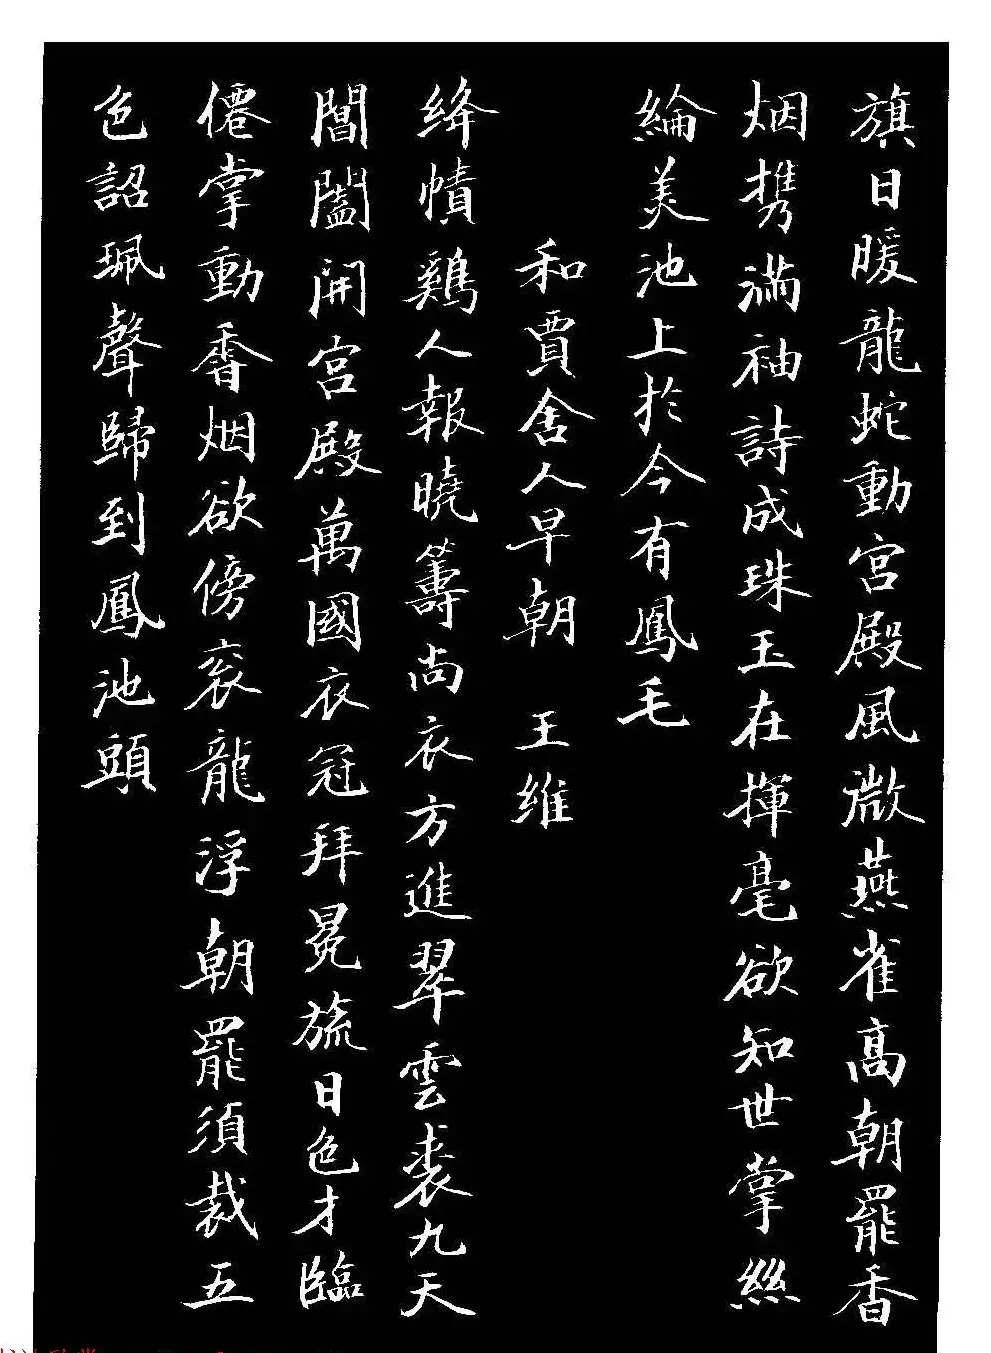 旗日暖龍蛇動宮殿風微燕雀高朝罷香
烟携滿袖詩成珠玉在揮毫欲知世掌絲
綸美池上於今有鳳毛
和賈舍人早朝 王維
絳幘鷄人報曉籌尚衣方進翠雲裘九天
閶闔開宮殿萬國衣冠拜冕旒日色才臨
僊掌動香烟欲傍衮龍浮朝罷須裁五
色詔珮聲歸到鳳池頭